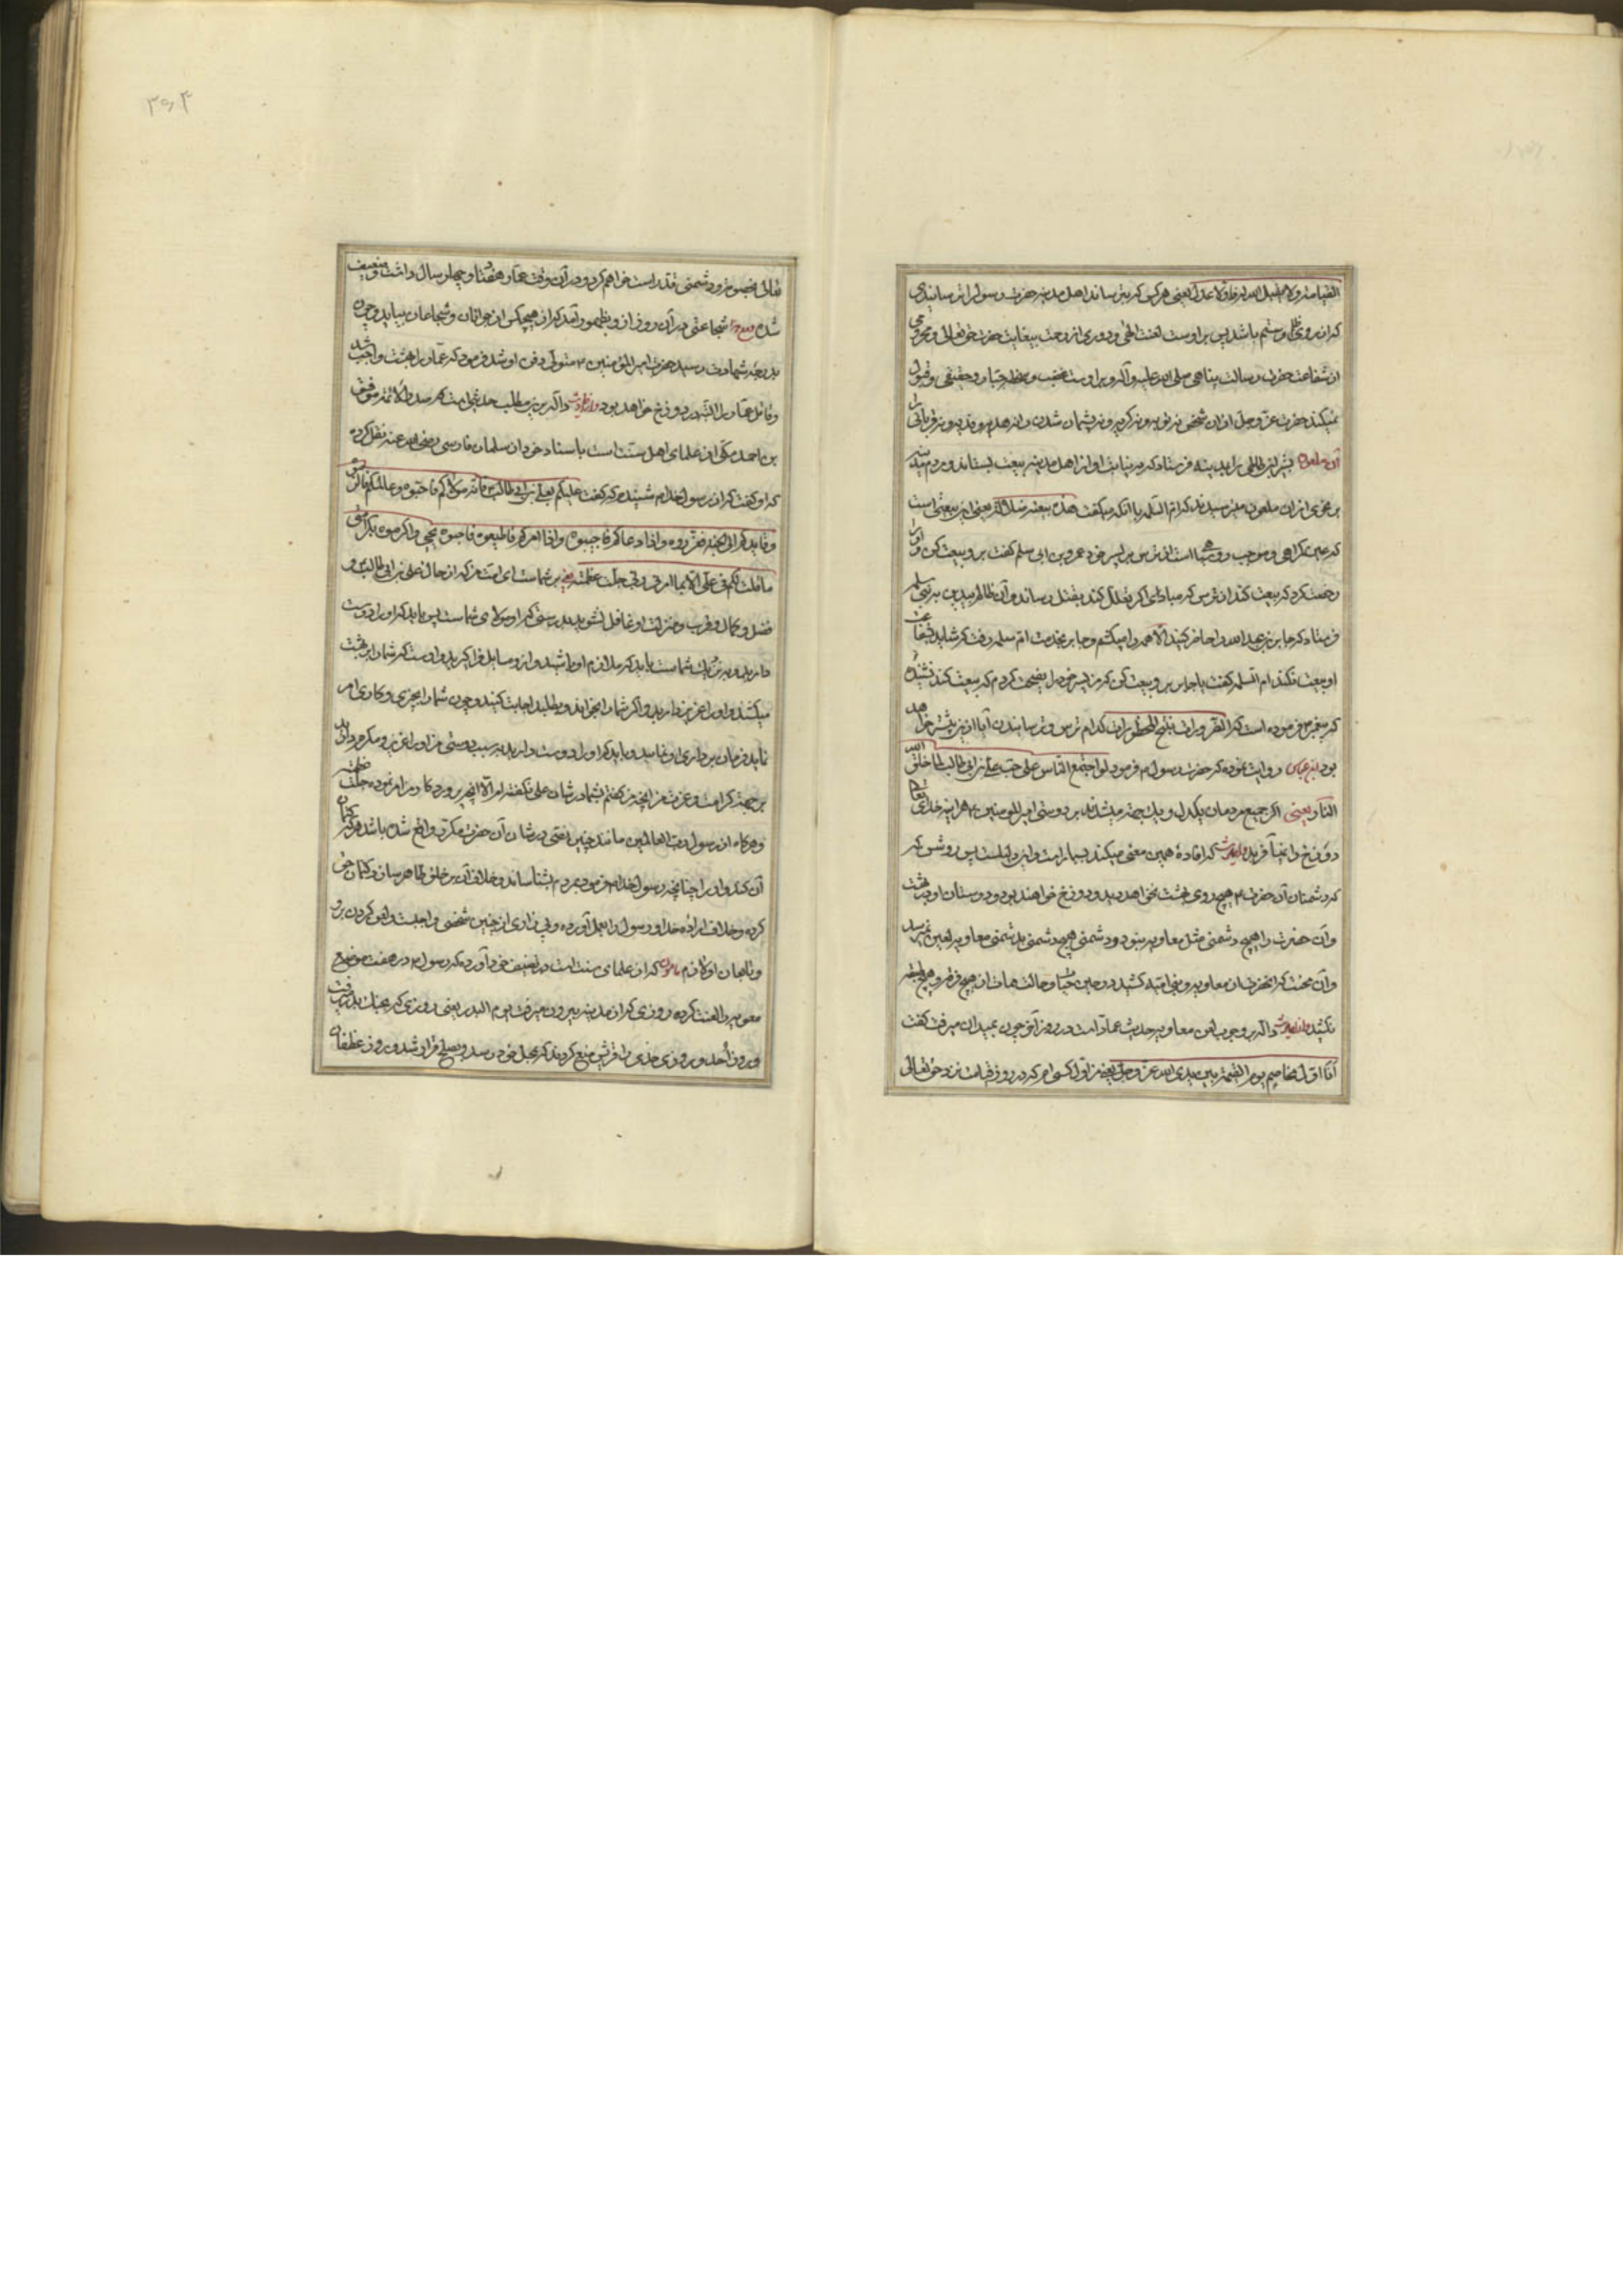 القیامة ولا یقبل الله صرفا ولا عدلا یعنی هر کس که بترساند اهل مدینه حضرت رسول را ترسانیدی
که از روی ظلم و ستم باشد پس بر اوست لعنت الهی و دوری از رحمت بیغایت حضرت حق تعالی و محرومی
از شفاعت حضرت رسالت پناهی صلی الله علیه وآله و بر اوست غضب و حقیقی و قبول
نمیکند حضرت عز وجل از آن شخص نه توبه و نه گریه و نه پشیمان شدن و نه فدیه و نه قربانی را
آن ملعون بسر فرستاد که به نیابت او از اهل مدینه بیعت بستاند و مردم مدینه
از آن ملعون میترسیدند که ام السلمه با آنکه میگفت هذه بیعة ضلالة یعنی این بیعتی است
که عین گمراهی و موجب است از ترس بر پسر خود عمرو بن ابی سلمه گفت برو بیعت کن و او را
رخصت کرد که بیعت کند از ترس که مبادا اگر تعلل کند بقتل رساند و آن ظالم بیدین به بنی سلمه
فرستاد که جابر بن عبد الله را حاضر کنید والا همه را میکشم و جابر بخدمت ام سلمه رفت که شاید شفاعت
او بیعت نکند ام السلمه گفت یا جابر برو بیعت کن که من پسر خود را نصیحت کردم که بیعت کند نشنیده
که پیغمبر فرموده است که الضرورات تبیح المحظورات کدام ترس و ترسانیدن آیا ازین بیشتر خواهد
بود ابن عباس روایت نموده که حضرت رسول م فرمود لو اجتمع الناس علی حب علی بن ابی طالب لما خلق الله
النار یعنی اگر جمیع مردمان یکدل و یک جهت میشدند بر دوستی امیر المؤمنین ع هر اینه خدای تعالی
دوزخ را نمی آفرید و احادیث که افاده همین معنی میکند بسیار است پس روشن که
که دشمنان آن حضرت ع هیچ روی بهشت نخواهند دید و در دوزخ خواهند بود و دوستان او در بهشت
وآن حضرت را هیچ دشمنی مثل معاویه نبود و دشمنی هیچ دشمنی بدشمنی معاویه لعین نمیرسد
وآن محنت که آنحضرت از معاویه و بنی امیه کشید در حین حیات و حالت ممات از هیچ فرقه و هیچ طبقه
نکشید دال بر وجوب لعن معاویه حدیث عمار است در روز آخر چون بمیدان میرفت گفت
انا اول مخاصم یوم القیمة بین یدی الله عز وجل یعنی من اول کسی ام که در روز قیامت نزد حق تعالی
۳۹۴
تعالی خصومت و دشمنی قد راست خواهم کرد و در آن وقت عمار هفتاد و چهار سال داشت و ضعیف
شده شجاعتی در آن روز از و بظهور آمد که از هیچکس از جوانان و شجاعان نیاید و چون
بدرجه شهادت رسید حضرت امیر المؤمنین ع متولی دفن او شد و فرمود که عمار را بهشت واجب شد
و قاتل عمار البته در دوزخ خواهد بود دال بر این مطلب حدیثی است که صدر الائمه موفق
بن احمد مکی از علمای اهل سنت است باسناد خود از سلمان فارسی رضی الله عنه نقل کرده
که او گفت که از رسول خدا م شنیدم که گفت علیکم بعلی بن ابی طالب فانه مولاکم فاحبوه وعالمکم فاکرموه
وقایدکم الی الجنة فعزروه واذا دعاکم فاجیبوه واذا امرکم فاطیعوه فاحبوه بحبی واکرموه بکرامتی
ما قلت لکم فی علی الا ما امرنی ربی جلت عظمته یعنی بر شماست ای امت من که از حال علی بن ابی طالب و
فضل و کمال و قرب و منزلت او غافل نشوید بدرستی که او مولای شماست پس باید که او را دوست
دارید و بزرگ شماست باید که ملازم او باشید و از و مسایل فرا گیرید و اوست که شما را به بهشت
میکشد و او را عزیز دارید و اگر شما را بخواند و بطلبد اجابت کنید و چون شما را بچیزی و کاری امر
نماید فرمان برداری او نمایید و باید که او را دوست دارید به سبب دوستی من او را عزیز و مکرم دارید
بر جهت کرامت و عزت من آنچه من گفتم بشما در شان علی نگفته ام الا آنچه پروردگار من امر نموده جلت عظمته
و هرگاه از رسول رب العالمین مانند چنین نصی در شان آن حضرت مکرر واقع شده باشد هر که کتمان
آن کند و او را چنانچه رسول خدا م فرمود بمردم نشناساند و خلاف آن بر خلق ظاهر سازد و کتمان حق
کرده و خلاف اراده خدا و رسول را بعمل آورده و بی زاری از چنین شخصی واجبست و لعن کردن برو
و تابعان او لازم که از علمای سنت است در تصنیف خود آورده که رسول م در هفت موضع
معویه را لعنت کرده روزی که از مدینه بیرون میرفت یوم البدر یعنی روزی که بجنگ بدر میرفت
و روز احد و روزی که هدی را قریش منع کردند که بمحل خود رسد و بصلح قرار شد و روز غطفان